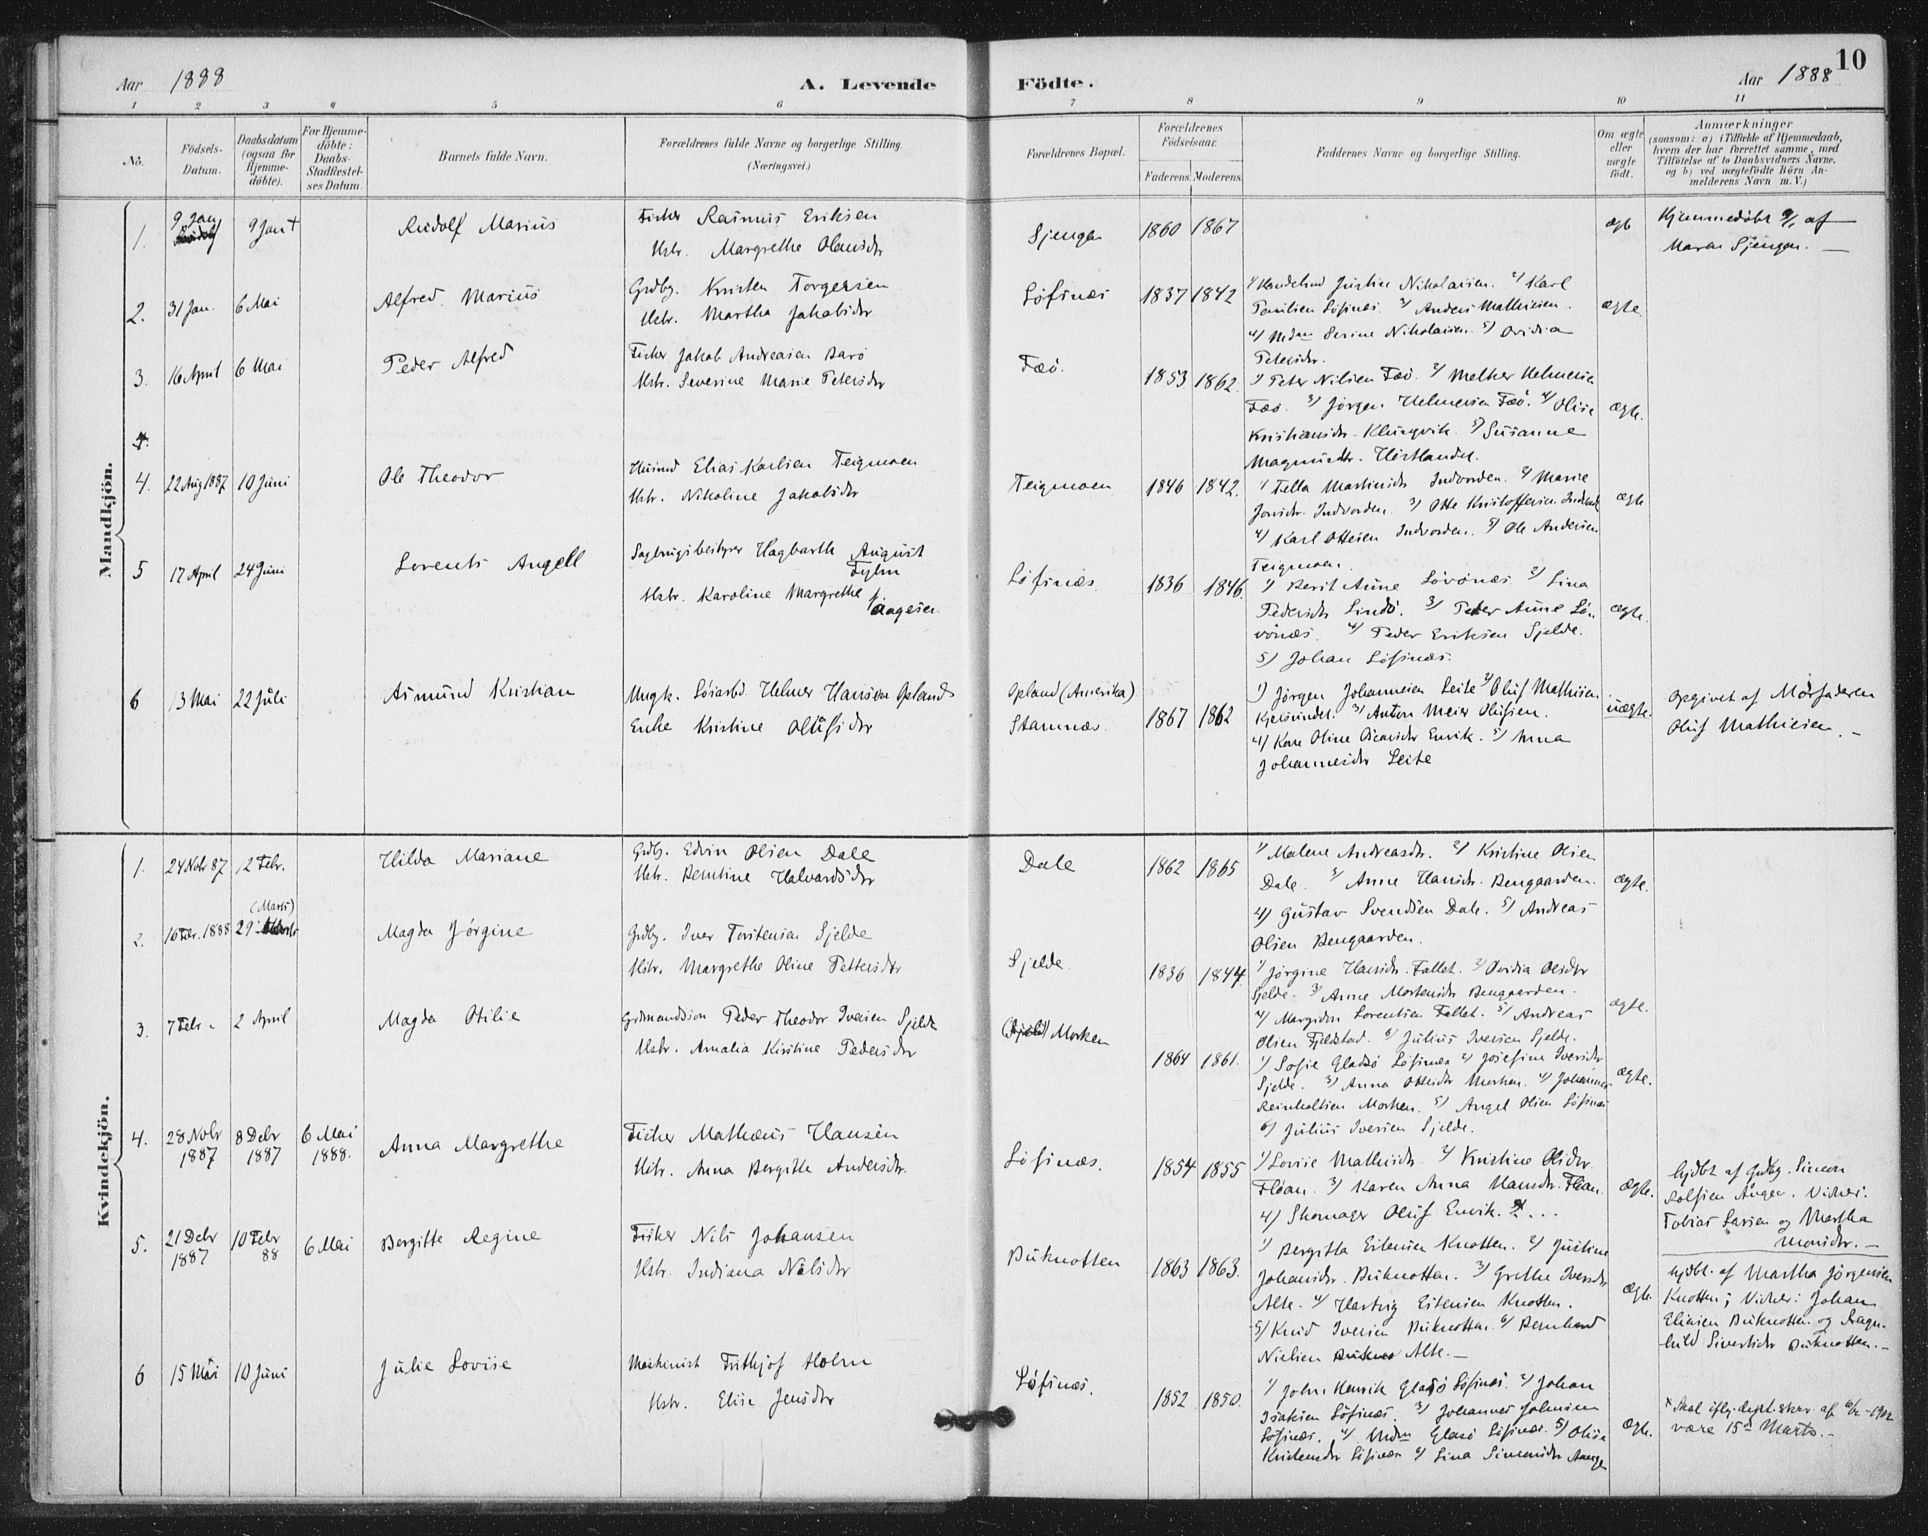 Aar 1888
A. Levende
Födte.
Aar 1888
10
1 2 3 4 5 6 7 8 9 10 11
No.
Födsels-
Datum.
Daabsdatum
(ogsaa for
Hjemme-
döbte).
For Hjemme-
döbte:
Daabs-
Stadfæstel-
ses Datum.
Barnets fulde Navn.
Forældrenes fulde Navne og borgerlige Stilling.
(Næringsvei.)
Forældrenes Bopæl.
Forældrenes
Födselsaar.
Faderens. Moderens.
Faddernes Navne og borgerlige Stilling.
Om ægte
eller
uægte
födt.
Anmærkninger
(saasom: a) i Tilfælde af Hjemmedaab,
hvem der har forrettet samme, med
Tilföielse af to Daabsvidners Navne,
og b) ved uægtefödte Börn An-
melderens Navn m. V.)
Mandkjön.
1. 9 Jan 9 Jan + Rudolf Marius
Fisker Rasmus Eriksen
Hstr. Margrethe Olausdtr
Sjengen 1860 1867
ægte
Hjemmedöbt 9/1 af
Maren Sjengen. —
2. 31 Jan. 6 Mai Alfred Marius
Grdbg. Kristen Torgersen
Hstr. Martha Jakobsdtr
Löfsnæs 1837 1842
1) Handelsmd Justin Nikolaisen. 2) Karl
Löfsnæs. 3) Anders Mathisen.
4) Serine Nikolaisen. 5) Ovidia
Petersdtr.
ægte
3. 16 April 6 Mai Peder Alfred
Fisker Jakob Andreasen Barö
Hstr. Severine Marie Petersdtr
Fæö. 1853 1862.
1) Peter Nilsen Fæö. 2) Melker Helmersen
Fæö. 3) Jörgen Helmersen Fæö. 4) Olise
Kristiansdtr. Klungvik. 5) Susanne
Magnusdtr.
ægte.
4. 22 Aug 1887 10 Juni Ole Theodor
Husmd Elias Karlsen Teigmoen
Hstr. Nikoline Jakobsdtr
Teigmoen 1846 1842.
1) Martinsdtr Indvorden. 2) Marie
Jonsdtr. Indvorden. 3) Otte Kristoffersen Indvord
4) Karl Ottesen Indvorden. 5) Ole Andersen
Teigmoen.
ægte
5 17 April 24 Juni Lorents Angell
Sagbrugsbestyrer Hagbarth August
Hstr. Karoline Margrethe f.
Aagesen
Löfsnæs. 1836 1846.
1) Berit Anne Lövönæs. 2) Lina
Pedersdtr Lindö. 3) Peter Aune Lö-
vönæs. 4) Peder Eriksen Sjelde.
5) Johan Löfsnæs.
ægte.
6 13 Mai 22 Juli Asmund Kristian
Ungk. Helmer Hansen Opland
Enke Kristine Olufsdtr
Opland (Amerika)
Stamnæs. 1867 1862
1) Jörgen Johannesen Leite 2) Oluf Mathisen
3) Anton Meier Olufsen.
4) Oline Envik. 5) Anna
Johannesdtr Leite
uægte.
Opgivet af Morfaderen
Oluf Mathisen. —
Kvindekjön.
1. 24 Nobr 87 12 Febr. Hilda Mariane
Grdb. Edvin Olsen Dale
Hstr. Berntine Halvardsdtr
Dale 1862 1865
1) Malene Andreasdtr. 2) Kristine Olsen
Dale. 3) Anne Hansdtr. Bengaarden.
4) Gustav Svendsen Dale. 5) Andreas
Olsen Bengaarden.
ægte.
2. 16 Febr. 1888 29 (Marts) Magda Jörgine
Grdbg. Iver Torstensen Sjelde
Hstr. Margrethe Oline Pettersdtr
Sjelde 1836 1844.
1) Jörgine Hansdtr. Fallet. 2) Ovidia Olsdtr
Sjelde. 3) Anne Mortensdtr Bengaarden.
4) Lorentsen Fallet. 5) Andreas
Olsen Fjeldstad. 6) Julius Iversen Sjelde.
ægte.
3. 7 Febr. 2 April Magda Otilie
Grdmandssön Peder Theodor Iversen Sjelde
Hstr. Amalia Kristine Pedersdtr
(Sjelde) Morken 1864 1861.
1) Sofie Glasö Löfsnæs 2) Josefine Iversdtr
Sjelde. 3) Anna Ottesdtr Morken. 4) Johannes
Reinholtsen Morken. 5) Angel Olsen Löfsnæs
6) Julius Iversen Sjelde.
ægte.
4. 28 Nobr 1887 8 Debr 1887 6 Mai 1888. Anna Margrethe
Fisker Mathæus Hansen
Hstr. Anna Bergitte Andersdtr.
Löfsnæs. 1854 1855
1) Lovise Mathisdtr. 2) Kristine Olsdtr.
Floan. 3) Karen Anna Hansdtr. Floan.
4) Skomager Oluf Envik.
ægte.
hjdbt af Grdbg. Simon
Rolfsen Aagen. Vidner:
Tobias Larsen og Martha
Monsdtr. —
5. 21 Debr 1887 10 Febr 88 6 Mai Bergitte Regine
Fisker Nils Johansen
Hstr. Indiana Nilsdtr
Buknotten 1863 1863.
1) Bergitta Knotten. 2) Justine
Johansdtr. Buknotten. 3) Grethe Iversdtr
Alte. 4) Hartvig Knotten.
5) Knud Iversen Buknotten. 6) Bernhard
Nielsen Alte. —
ægte.
hjdbt. af Martha Jörgensen
Knotten; Vidner: Johan
Eliasen Buknotten og Ragn-
hild Sivertsdtr Buknotten. —
6 15 Mai 10 Juni Julie Lovise
Maskinist Frithjof Holm
Hstr. Elise Jensdtr
Löfsnæs. 1852 1850.
1) John Henrik Glasö Löfsnæs. 2) Johan
Isaksen Löfsnæs. 3) Johannes Johnsen
Löfsnæs. 4) Glasö Löfsnæs. 5) Olise
Kristensdtr Löfsnæs 6) Lina Simonsdtr Aange
ægte.
* Skal iflg. dept. skriv. af 6/2 - 1902
være 15de Marts. —